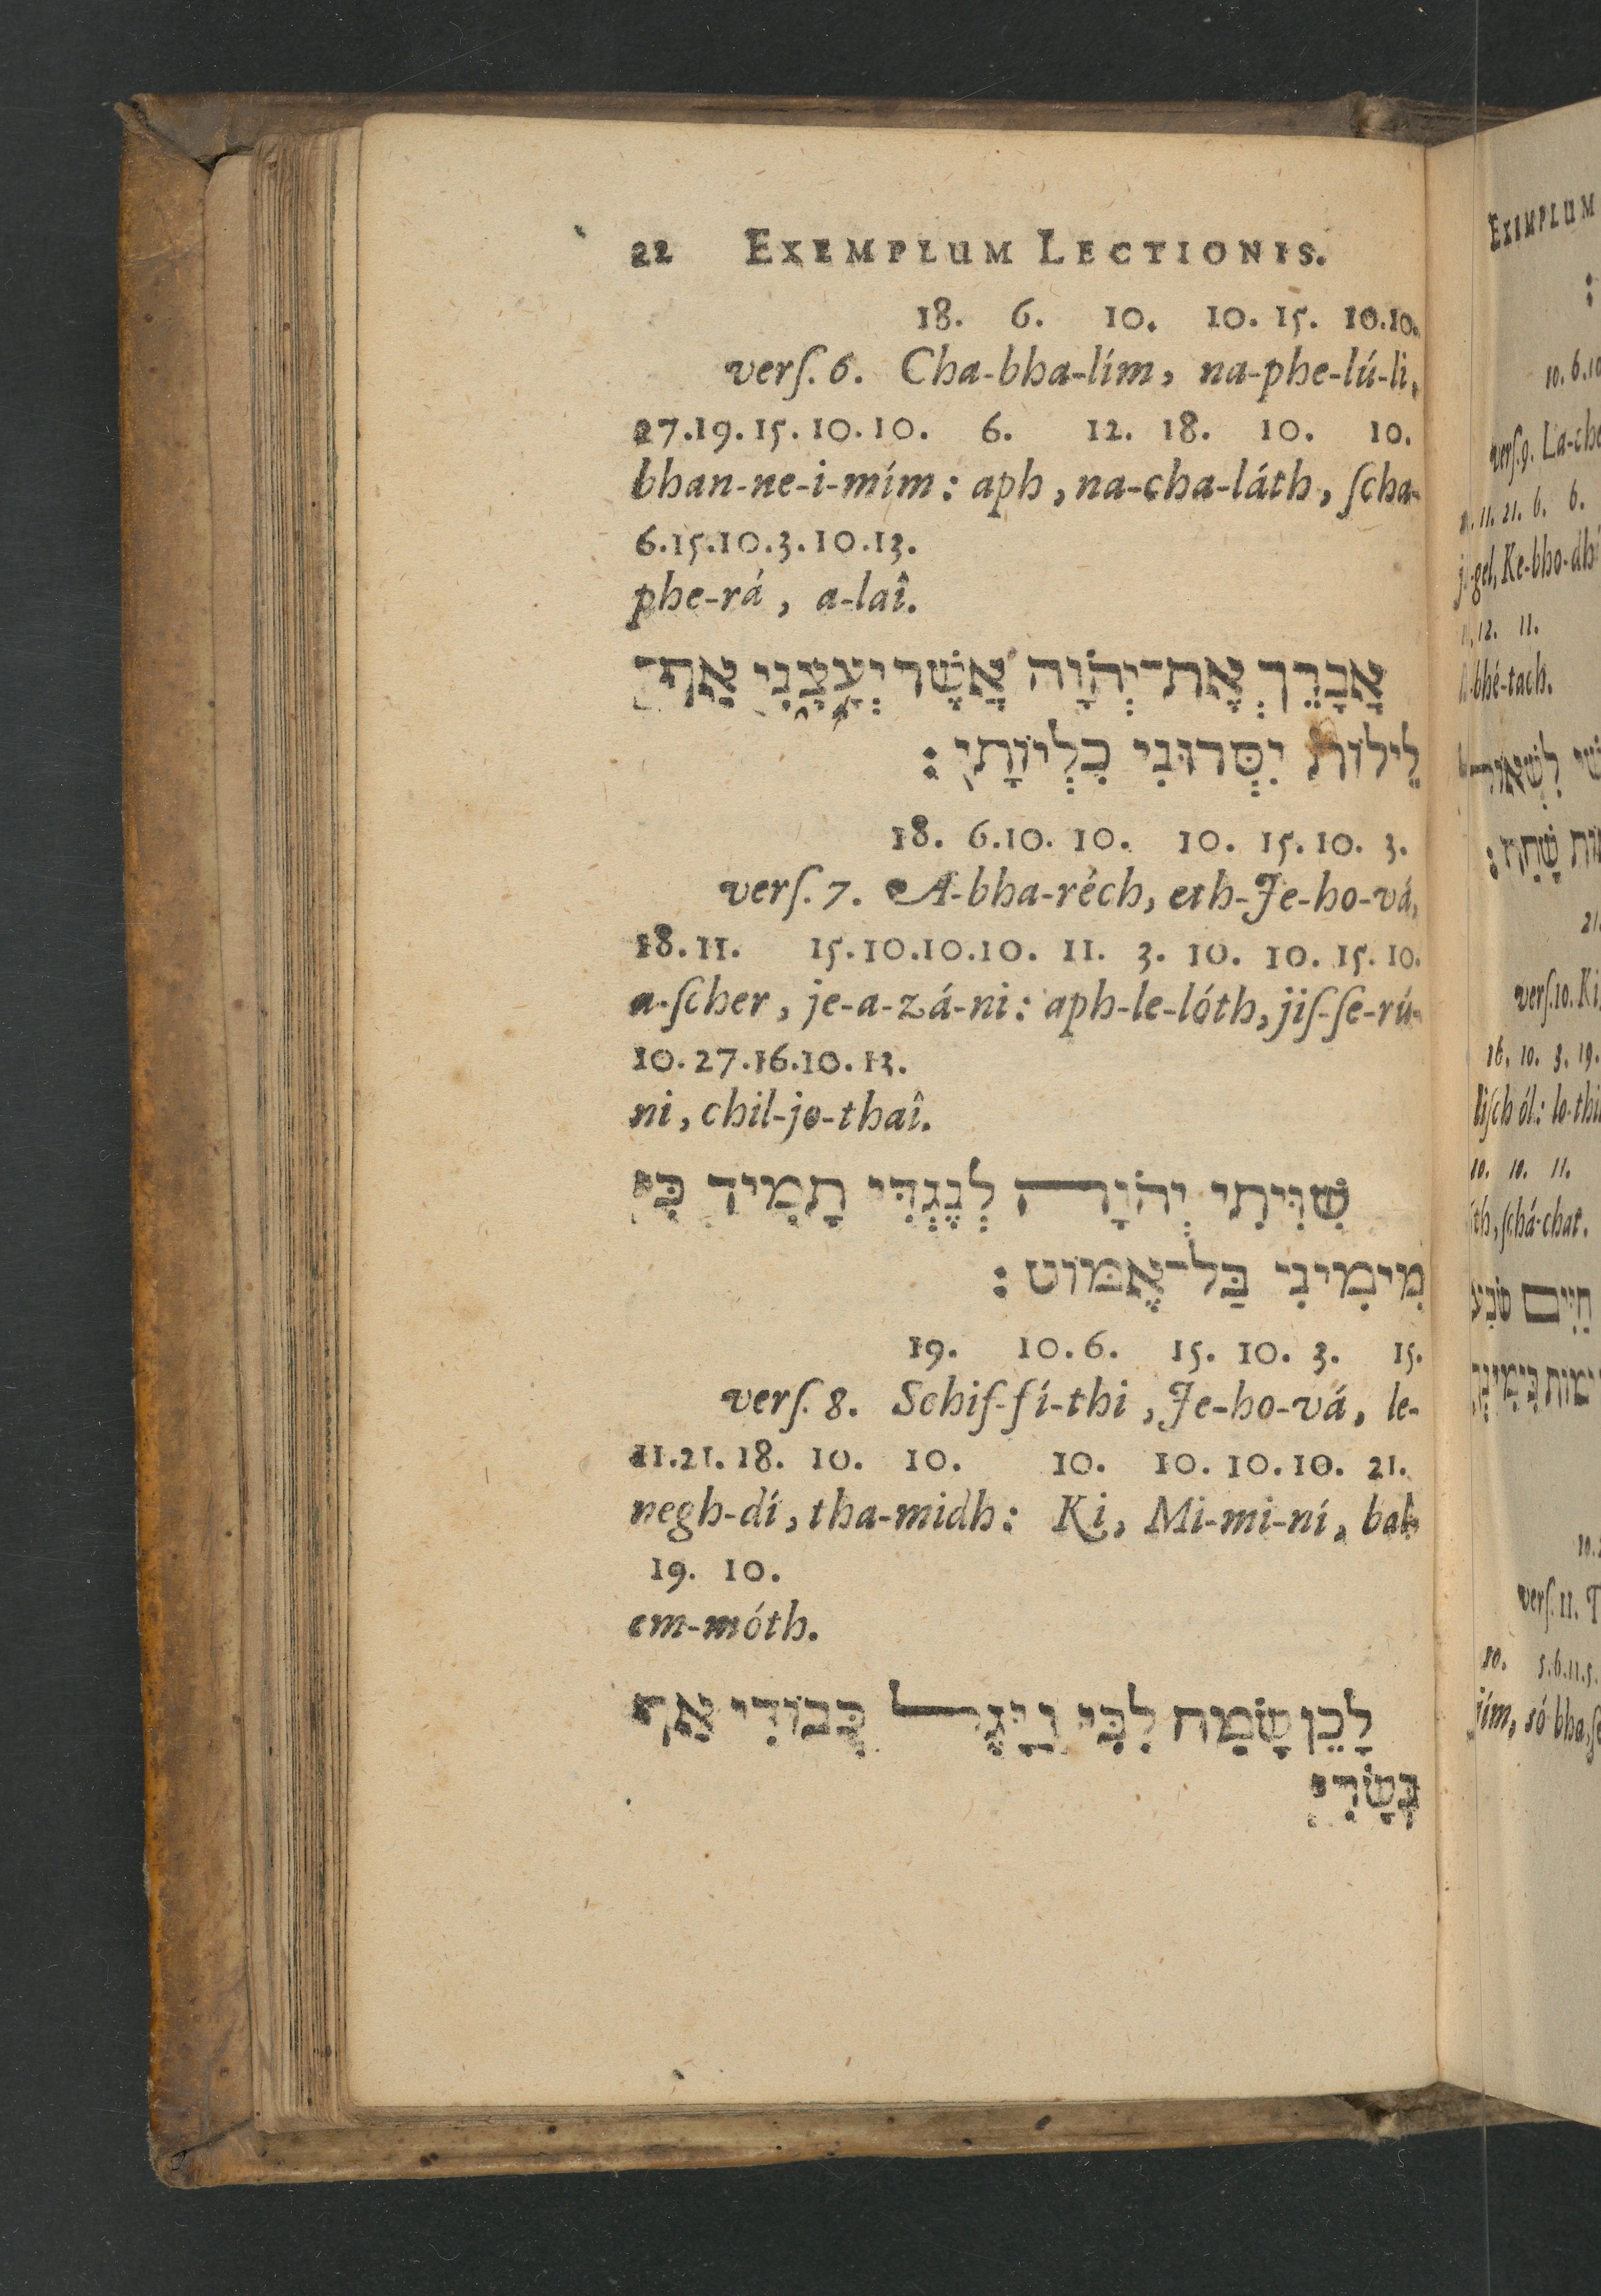 22 EXEMPLUM LECTIONIS.
18. 6. 10. 10. 15. 10.10.
verſ. 6. Cha-bha-lím, na-phe-lú-li,
27.19.15.10.10. 6. 12. 18. 10. 10.
bhan-ne-i-mím: aph, na-cha-láth, ſcha-
6.15.10.3.10.13.
phe-rá, a-laî.
אֲבָרֵךְ אֶת־יְהֹוָה אֲשֶׁר יְעָצָנִי אַף־
לֵילוֹת יִסְּרוּנִי כִלְיוֹתָי :
18. 6.10. 10. 10. 15.10. 3.
verſ. 7. A-bha-réch, eth-Je-ho-vá,
18.11. 15.10.10.10. 11. 3. 10. 10. 15. 10.
a-ſcher, je-a-zá-ni: aph-le-lóth, jiſ-ſe-rú-
10.27.16.10.13.
ni, chil-jo-thaî.
שִׁוִּיתִי יְהֹוָה לְנֶגְדִּי תָמִיד כִּי
מִימִינִי בַּל־אֶמּוֹט :
19. 10.6. 15. 10. 3. 15.
verſ. 8. Schiſ-ſí-thi, Je-ho-vá, le-
11.21.18. 10. 10. 10. 10.10.10. 21.
negh-dí, tha-midh: Ki, Mi-mi-ní, bal-
19. 10.
em-móth.
לָכֵן שָׂמַח לִבִּי וַיָּגֶל כְּבוֹדִי אַף
בְּשָׂרִי
EXEMPLUM
:
verſ.9. La-che
11. 21. 6. 6.
-gel, Ke-bho-dhí
12. 11.
bhé-tach.
לִשְׁאוֹל
שָׁחַת :
21.
verſ.10. Ki,
16. 10. 3. 19.
liſch ól: lo-thi
10. 10. 11.
th, ſchá-chat.
חַיִּים שֹׂבַע
verſ. 11. T
10. 5.6.11.5.
jím, só bha, ſe